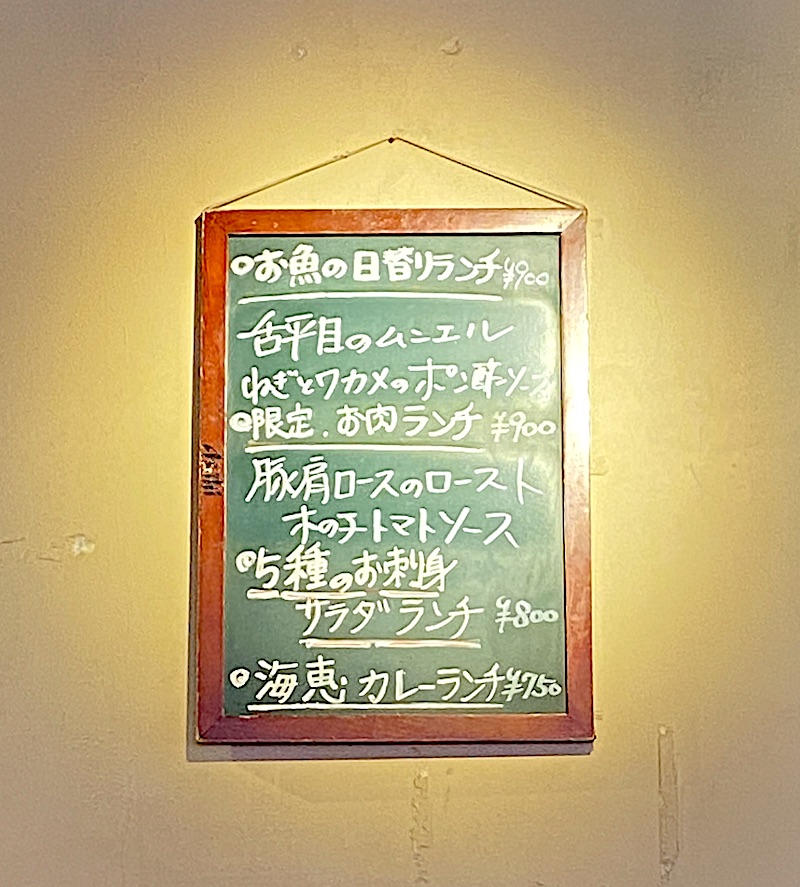 お魚の日替りランチ ¥900
舌平目のムニエル
ねぎとワカメのポン酢ソース
限定.お肉ランチ ¥900
豚肩ロースのロースト
木のチトマトソース
5種のお刺身
サラダランチ ¥800
海恵カレーランチ ¥750
Asahi